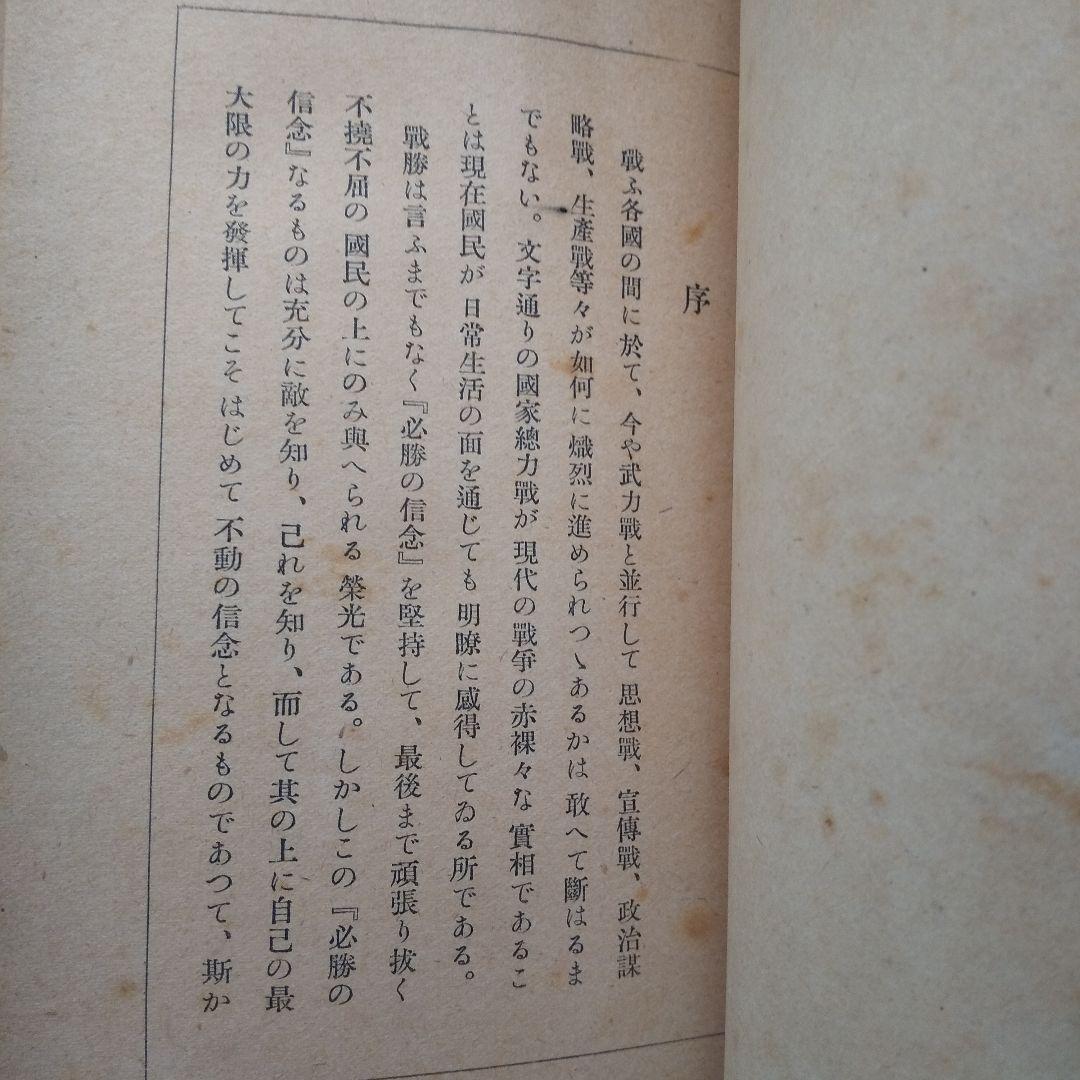 序
戰ふ各國の間に於て、今や武力戰と並行して思想戰、宣傳戰、政治謀
略戰、生產戰等々が如何に熾烈に進められつゝあるかは敢へて斷はるま
でもない。文字通りの國家總力戰が現代の戰爭の赤裸々な實相であるこ
とは現在國民が日常生活の面を通じても明瞭に感得してゐる所である。
戰勝は言ふまでもなく『必勝の信念』を堅持して、最後まで頑張り拔く
不撓不屈の國民の上にのみ與へられる榮光である。しかしこの『必勝の
信念』なるものは充分に敵を知り、己れを知り、而して其の上に自己の最
大限の力を發揮してこそはじめて不動の信念となるものであつて、斯か